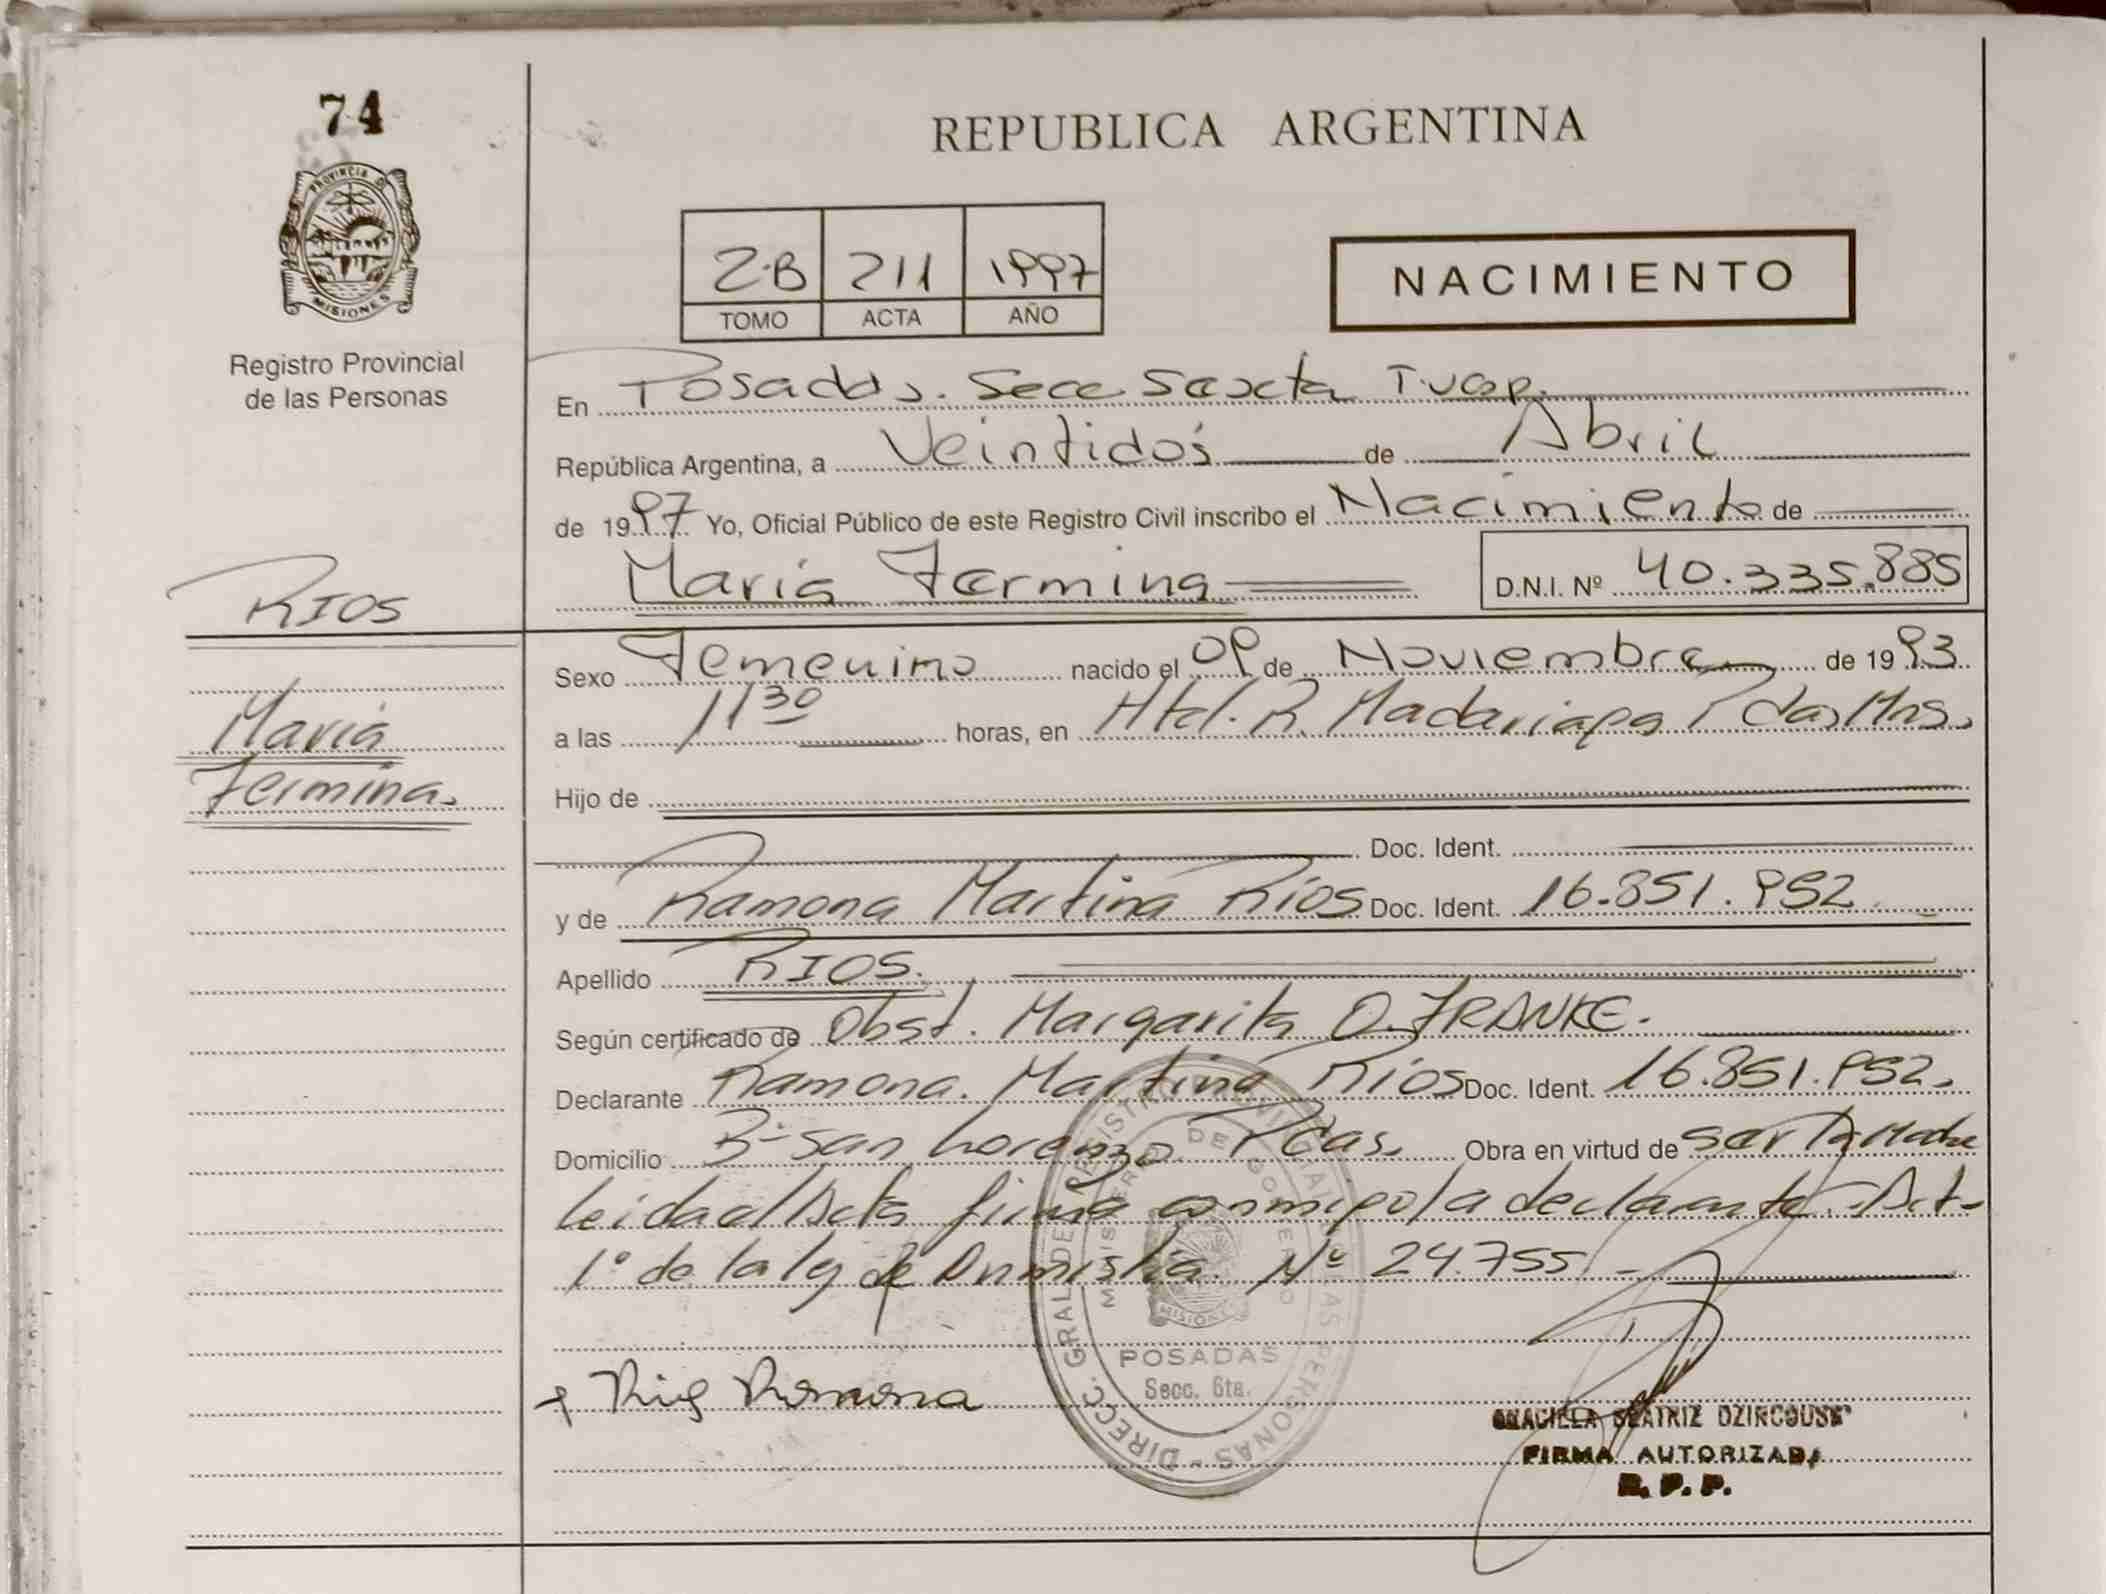 74
REPUBLICA ARGENTINA
PROVINCIA DE
MISIONES
Registro Provincial
de las Personas
2-B 211 1997
TOMO ACTA AÑO
NACIMIENTO
En Posadas. Secc Sexta T.
República Argentina, a Veintidós de Abril
de 1997 Yo, Oficial Público de este Registro Civil inscribo el Nacimiento de
María Fermina D.N.I. Nº 40.335.885
RIOS
María
Fermina.
Sexo Femenino nacido el 09 de Noviembre de 1993
a las 11 30 horas, en Htal. R. Madariaga Pdas Mns.
Hijo de
Doc. Ident.
y de Ramona Martina Ríos Doc. Ident. 16.851.952
Apellido RIOS.
Según certificado de Obst. Margarita O. FRANKE.
Declarante Ramona. Martina Ríos Doc. Ident. 16.851.952.
Domicilio Bº San Lorenzo Pdas. Obra en virtud de ser la Madre
leida el Acta firma conmigo la declarante. Art-
1º de la ley de Amnistía Nº 24.755 -
DIRECC. GRAL. DE REGISTRO PROVINCIAL DE LAS PERSONAS
MINISTERIO DE GOBIERNO
MISIONES
POSADAS
Secc. 6ta.
Ramona
GRACIELA BEATRIZ
FIRMA AUTORIZADA
R. P. P.